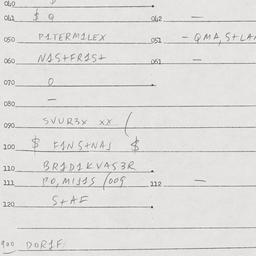 040
041 $ Q 042 —
050 P1TERM1LEX 051 - QMA, S+LAN
060 N1S+FR1S+ 051 —
070 0
080 —
090 SVUR3X XX (
100 $ F1NS+NAS $
110 BR1D1KVAS3R
111 PO, MISIS /009 112 —
120 S+AF
900 DOR1F: